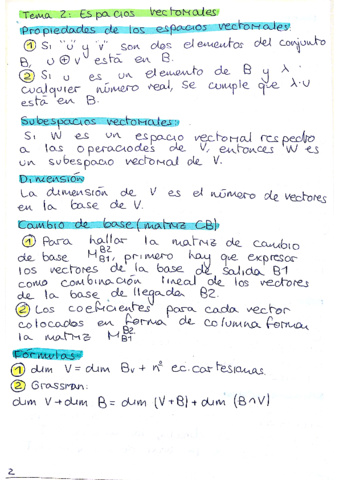 Tema 2: Espacios vectoriales
Propiedades de los espacios vectoriales
① Si "u" y "v" son dos elementos del conjunto
B, u ⊕ v está en B.
② Si u es un elemento de B y λ
cualquier número real, se cumple que λ·u
está en B.
Subespacios vectoriales:
Si W es un espacio vectorial respecto
a las operaciones de V, entonces W es
un subespacio vectorial de V.
Dimensión
La dimensión de V es el número de vectores
en la base de V.
Cambio de base (matriz CB)
① Para hallar la matriz de cambio
de base M_{B1}^{B2}, primero hay que expresar
los vectores de la base de salida B1
como combinación lineal de los vectores
de la base de llegada B2.
② Los coeficientes para cada vector
colocados en forma de columna forman
la matriz M_{B1}^{B2}
Fórmulas
① dim V = dim Bv + nº ec. cartesianas.
② Grassman:
dim V + dim B = dim (V+B) + dim (B∩V)
2